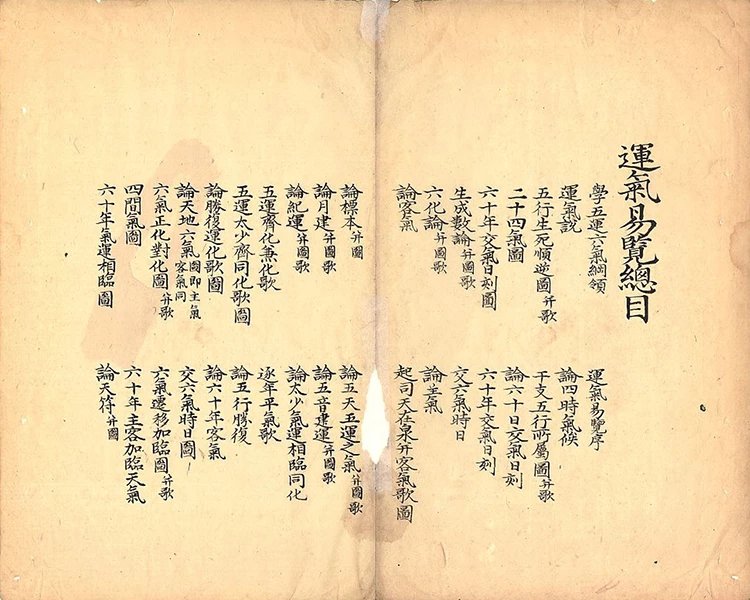 運氣易覽總目
學五運六氣綱領
運氣易覽序
運氣說
論四時氣候
五行生死順逆圖并歌
干支五行所屬圖并歌
二十四氣圖
論六十日交氣日刻
六十年交氣日刻圖
六十年交氣日刻
生成數論并圖歌
交六氣時日
六化論并圖歌
論生氣
論客氣
起司天在泉并客氣歌圖
論標本并圖
論五天五運之氣并圖歌
論月建并圖歌
論五音建運并圖歌
論紀運并圖歌
論太少氣運相臨同化
五運齊化兼化歌
逐年平氣歌
五運太少齊同化歌圖
論五行勝復
論勝復運化歌圖
論六十年客氣
論天地六氣圖即主氣客氣同
交六氣時日圖
六氣正化對化圖并歌
六氣遷移加臨圖并歌
四間氣圖
六十年主客加臨天氣
六十年氣運相臨圖
論天符并圖